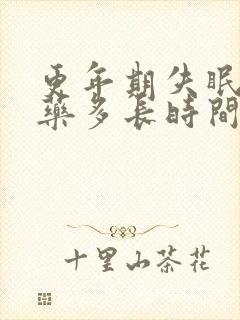 更年期失眠
藥多長時間
十里山茶花